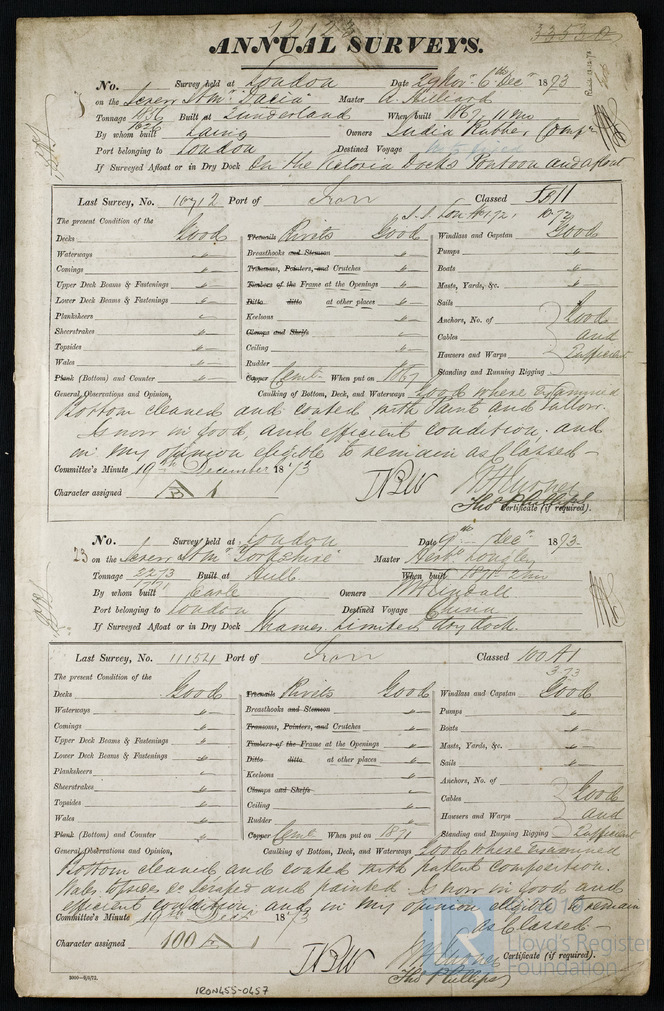 ANNUAL SURVEYS.
No. Survey held at London Date 29 Nov. 6th Dec 1873
on the Screw Stmr "Dacia" Master A. Hilliard
Tonnage 1856 Built at Sunderland When built 1867 11 mo
By whom built Laing Owners India Rubber Compy
Port belonging to London Destined Voyage
If Surveyed Afloat or in Dry Dock On the Victoria Docks Pontoon and afloat
Last Survey, No. 10712 Port of Iron Classed
The present Condition of the
Decks Good Treenails Rivits Good Windlass and Capstan Good
Waterways " Breasthooks and Stemson " Pumps "
Comings " Transoms, Pointers, and Crutches " Boats "
Upper Deck Beams & Fastenings " Timbers of the Frame at the Openings " Masts, Yards, &c. "
Lower Deck Beams & Fastenings " Ditto ditto at other places " Sails
Planksheers Keelsons " Anchors, No. of Good
Sheerstrakes " Clamps and Shelfs Cables and
Topsides " Ceiling Hawsers and Warps Sufficient
Wales " Rudder " Standing and Running Rigging
Plank (Bottom) and Counter " Copper Cemt. When put on 1867
General Observations and Opinion, Caulking of Bottom, Deck, and Waterways Good where Examined
Bottom cleaned and coated with Paint and Tallow.
Is now in good and efficient condition, and
in my opinion eligible to remain as Classed –
Committee's Minute 19th December 1873
Character assigned
Thos Phillips Certificate (if required).
No. Survey held at London Date 9th Decr 1873.
23 on the Screw Stmr "Yorkshire" Master Herbt Longley
Tonnage 2273 Built at Hull When built 1871 2 mo
By whom built Earle Owners
Port belonging to London Destined Voyage China
If Surveyed Afloat or in Dry Dock Thames Limited dry dock.
Last Survey, No. 11154 Port of Iron Classed 100 A1
3.73
The present Condition of the
Decks Good Treenails Rivits Good Windlass and Capstan Good
Waterways " Breasthooks and Stemson " Pumps "
Comings " Transoms, Pointers, and Crutches " Boats "
Upper Deck Beams & Fastenings " Timbers of the Frame at the Openings " Masts, Yards, &c. "
Lower Deck Beams & Fastenings " Ditto ditto at other places " Sails "
Planksheers Keelsons " Anchors, No. of
Sheerstrakes " Clamps and Shelfs Cables Good
Topsides " Ceiling " Hawsers and Warps and
Wales " Rudder " Standing and Running Rigging Sufficient
Plank (Bottom) and Counter " Copper Cemt. When put on 1871
General Observations and Opinion, Caulking of Bottom, Deck, and Waterways Good where Examined
Bottom cleaned and coated with Patent Composition.
Wales Topsides &c Scraped and painted Is now in good and
efficient condition, and in my opinion eligible to remain
as Classed –
Committee's Minute 19th Decr 1873
Character assigned 100 A 1
Certificate (if required).
Thos Phillips
IRON455-0457
Lloyd's Register
Foundation